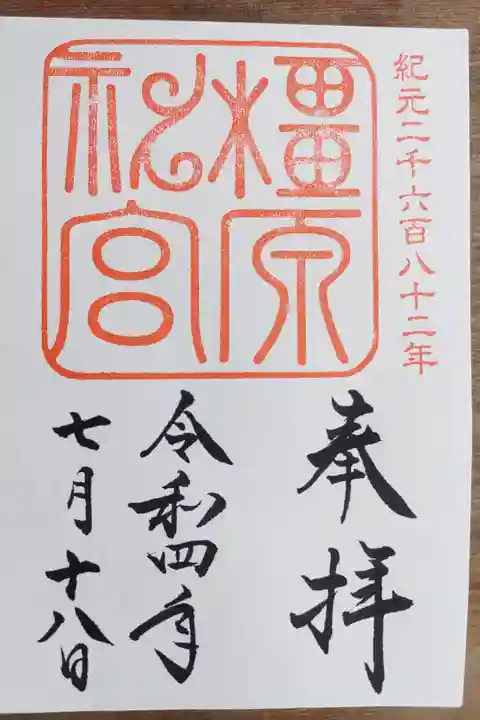 紀元二千六百八十二年
橿原
神宮
奉拝
令和四年
七月十八日